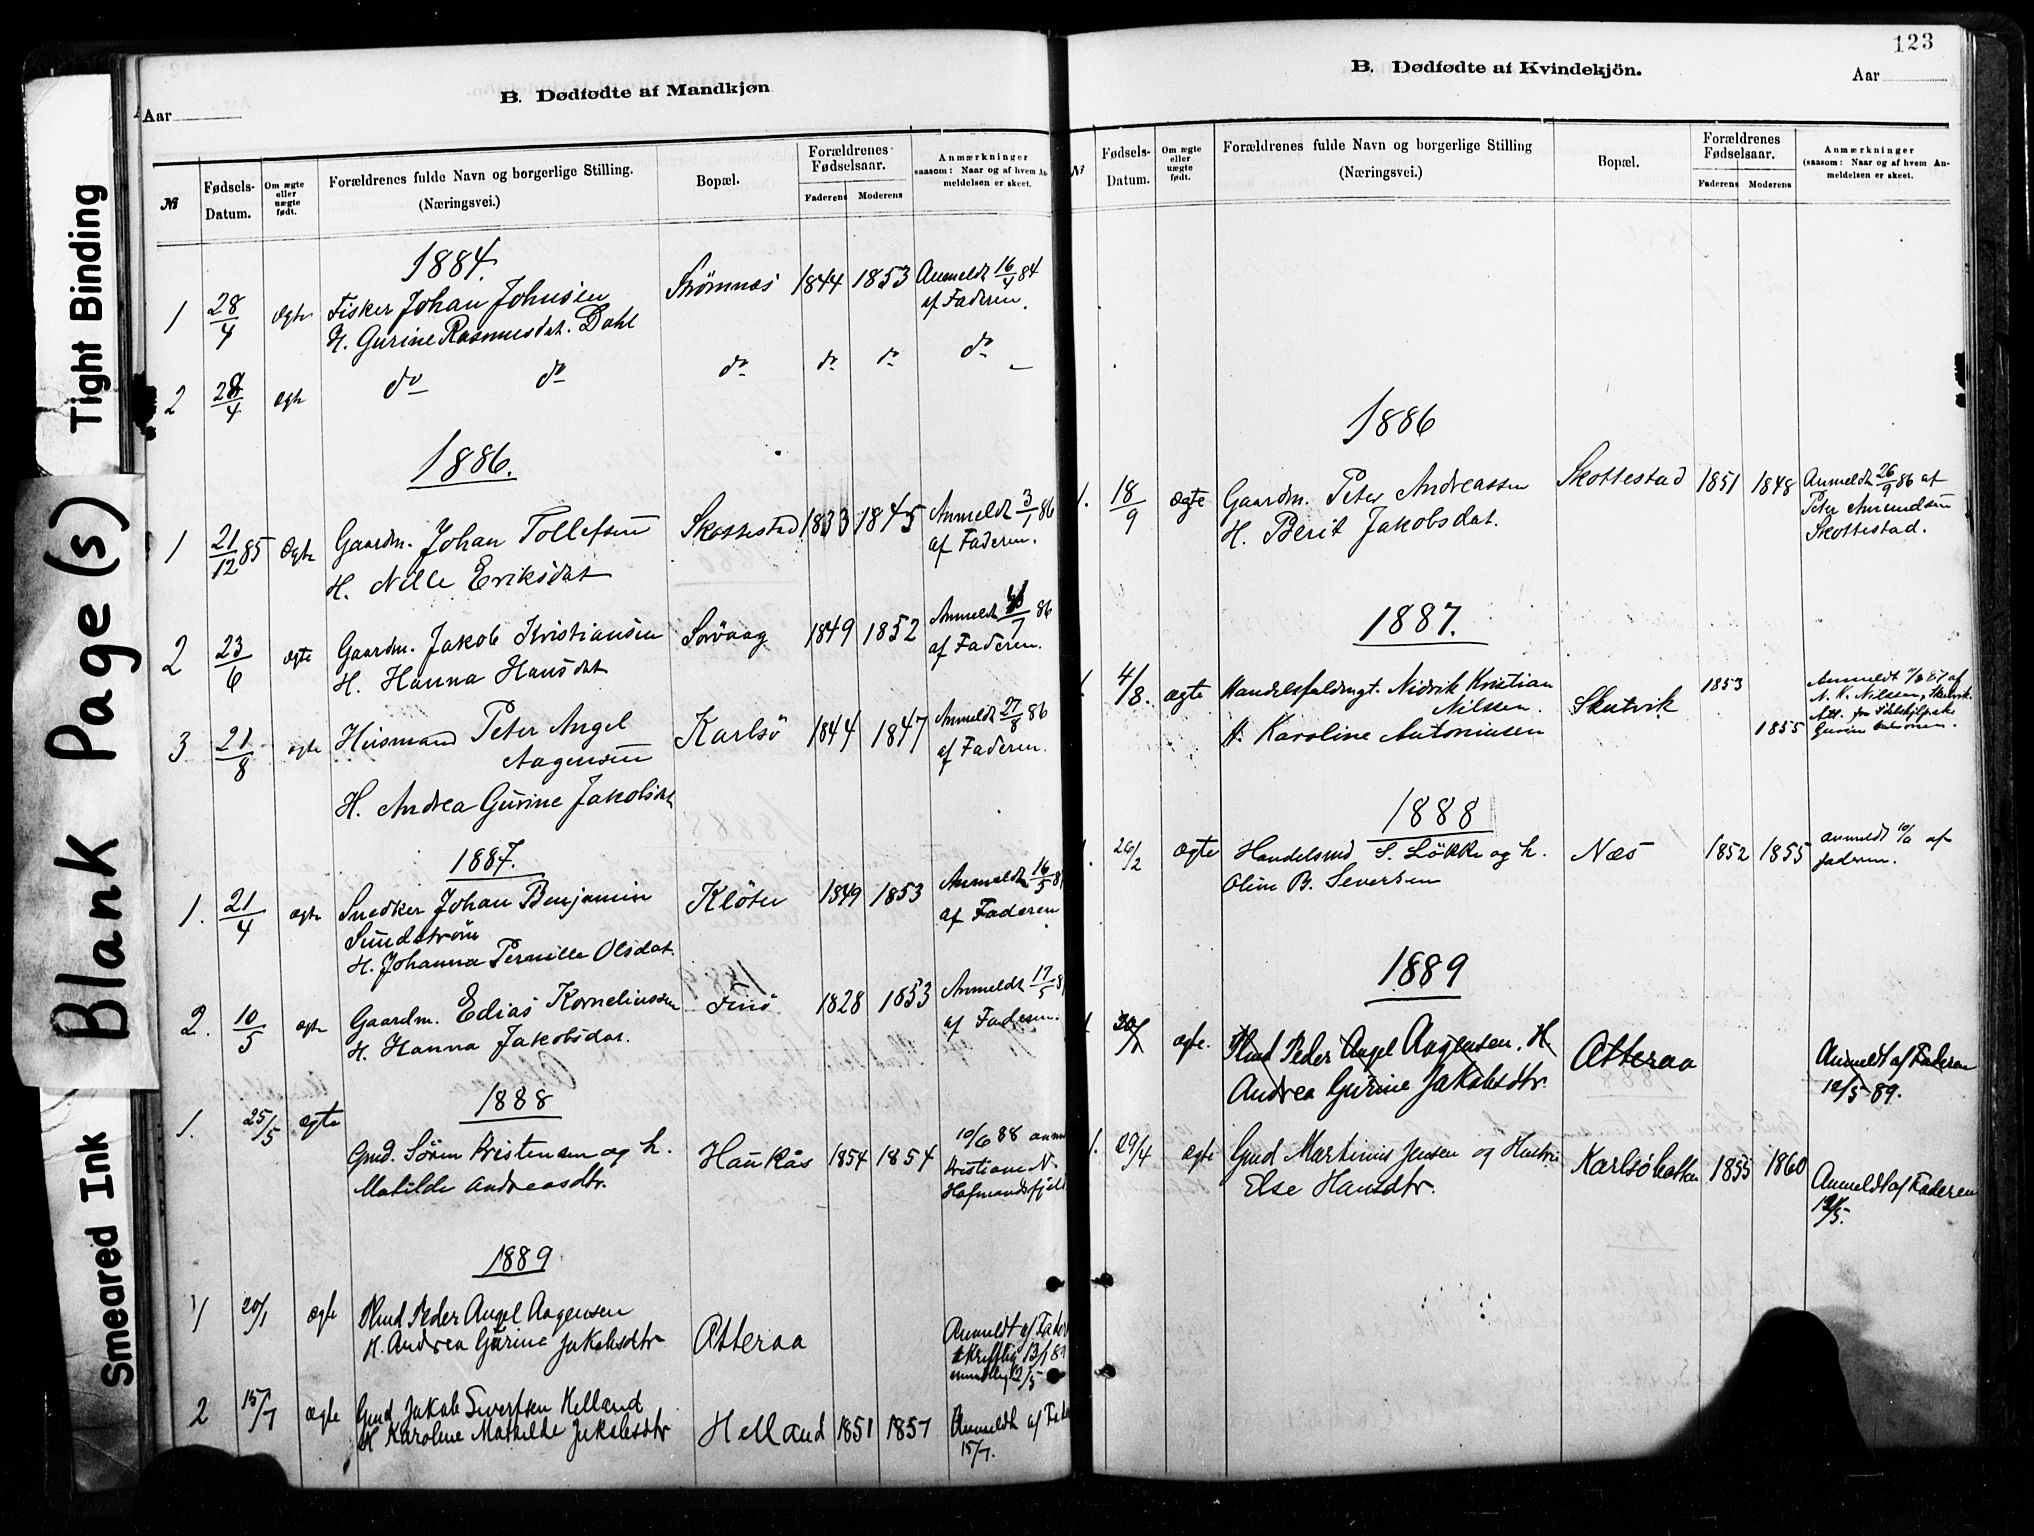 Tight Binding
Blank Page(s)
Smeared Ink
B. Dødfødte af Mandkjøn
Aar
№
Fødsels-Datum.
Om ægte eller uægte født.
Forældrenes fulde Navn og borgerlige Stilling. (Næringsvei.)
Bopæl.
Forældrenes Fødselsaar.
Faderens
Moderens
Anmærkninger
saasom: Naar og af hvem Anmeldelsen er skeet.
1884.
1 28/4 ægte Fisker Johan Johnsen Strømnæs 1844 1853 Anmeldt 16/4 84
H. Gurine Rasmusdat. Dahl af Faderen.
2 28/4 ægte do do do do do do
1886.
1 21/12 85 Ægte Gaardm. Johan Tollefsen Skottestad 1833 1845 Anmeldt 3/1 86
H. Nille Eriksdat af Faderen.
2 23/6 ægte Gaardm. Jakob Kristiansen Sørvaag 1849 1852 Anmeldt /7 86
H. Hanna Hansdat af Faderen.
3 21/8 ægte Huismand Peter Angel Karlsö 1844 1847 Anmeldt 27/8 86
Aagensen af Faderen.
H. Andrea Gurine Jakobsdat
1887.
1. 21/4 ægte Snedker Johan Benjamin Kløter 1849 1853 Anmeldt 16/5 8
Sundstrøm af Faderen
H. Johanna Pernille Olsdat.
2. 10/5 ægte Gaardm. Edias Korneliussen Finö 1828 1853 Anmeldt 17/5 8
H. Hanna Jakobsdat. af Faderen.
1888
1. 25/5 ægte Gmd. Sören Kristensen og h. Haukås 1854 1854 10/6 88 anm
Matilde Andreasdtr. Kristiane N.
Hafmandsfjeld
1889
1 20/1 ægte Hmd Peder Angel Aagensen Atteraa Anmeldt af Fader
H. Andrea Gurine Jakobsdtr skriftlig 13/1 89
mundtlig 12/5
2 15/7 ægte Gmd Jakob Sivertsen Helland Helland 1851 1857 Anmeldt af Fade
H Karoline Mathilde Jakobsdtr 15/7.
123
B. Dødfødte af Kvindekjön.
Aar
№
Fødsels-Datum.
Om ægte eller uægte født.
Forældrenes fulde Navn og borgerlige Stilling
(Næringsvei.)
Bopæl.
Forældrenes Fødselsaar.
Faderens
Moderens
Anmærkninger
(saasom: Naar og af hvem Anmeldelsen er skeet.
1886
1. 18/9 ægte Gaardm. Peter Andreassen Skottestad 1851 1848 Anmeldt 26/9 86 af
H. Berit Jakobsdat. Peter Amundsen
Skottestad.
1887.
4/8. ægte Handelsfuldmgt. Nidrik Kristian Nilssen. Skutvik 1853 Anmeldt 87 af
H. Karoline Antoniusen 1855 N. K. Nilssen, Skutvik.
1888
26/2 ægte Handelsmd S. Løkke og h. Næs 1852 1855 anmeldt af
Oline B. Seversen faderen.
1889
20/1 ægte. Hmd Peder Angel Aagensen. H Atteraa Anmeldt af Faderen
Andrea Gurine Jakobsdtr. 12/5-89.
1. 29/4 ægte Gmd Martinus Jensen og Hustru Karlsöbakken 1855 1860 Anmeldt af Faderen
Else Hansdtr. 12/5.